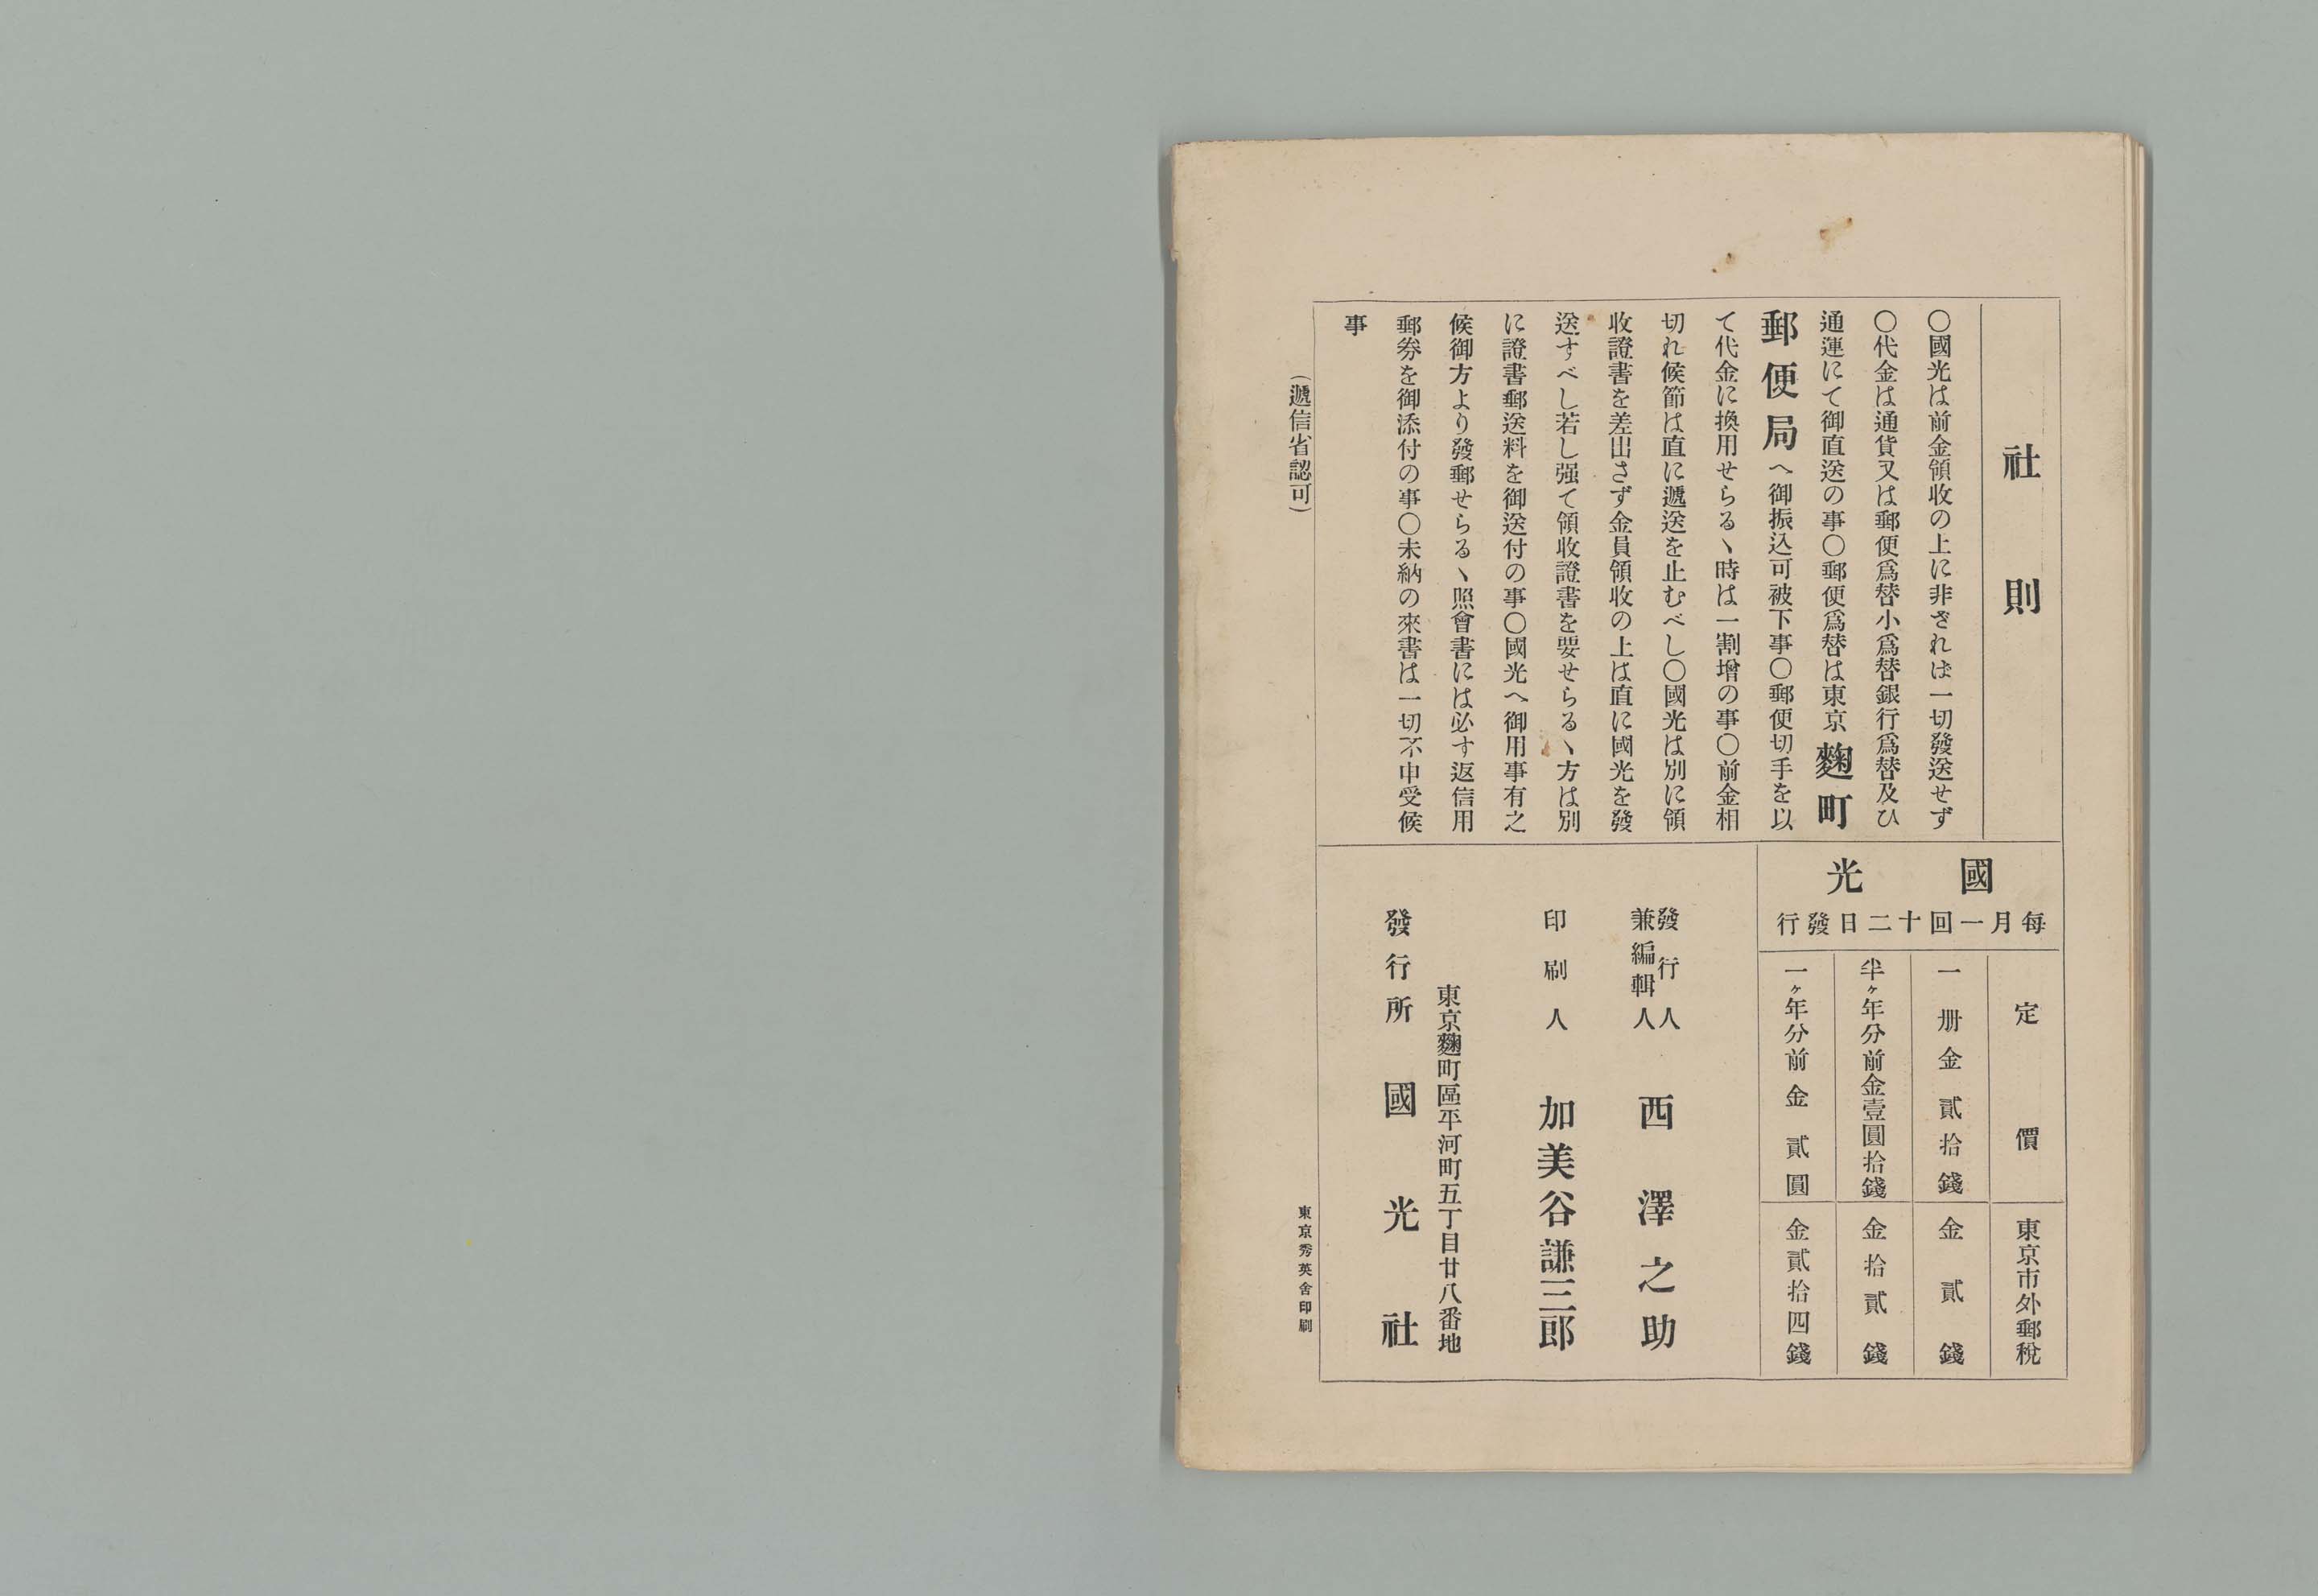 社則
〇國光は前金領收の上に非ざれば一切發送せず
〇代金は通貨又は郵便爲替小爲替銀行爲替及ひ
通運にて御直送の事〇郵便爲替は東京麴町
郵便局へ御振込可被下事〇郵便切手を以
て代金に換用せらるゝ時は一割增の事〇前金相
切れ候節は直に遞送を止むべし〇國光は別に領
收證書を差出さず金員領收の上は直に國光を發
送すべし若し强て領收證書を要せらるゝ方は別
に證書郵送料を御送付の事〇國光へ御用事有之
候御方より發郵せらるゝ照會書には必す返信用
郵券を御添付の事〇未納の來書は一切不申受候
事
(遞信省認可)
國光
每月一回十二日發行
定價
東京市外郵稅
一册金貳拾錢
金貳錢
半ヶ年分前金壹圓拾錢
金拾貳錢
一ヶ年分前金貳圓
金貳拾四錢
發行人
兼編輯人
西澤之助
印刷人 加美谷謙三郎
東京麴町區平河町五丁目廿八番地
發行所 國光社
東京秀英舍印刷